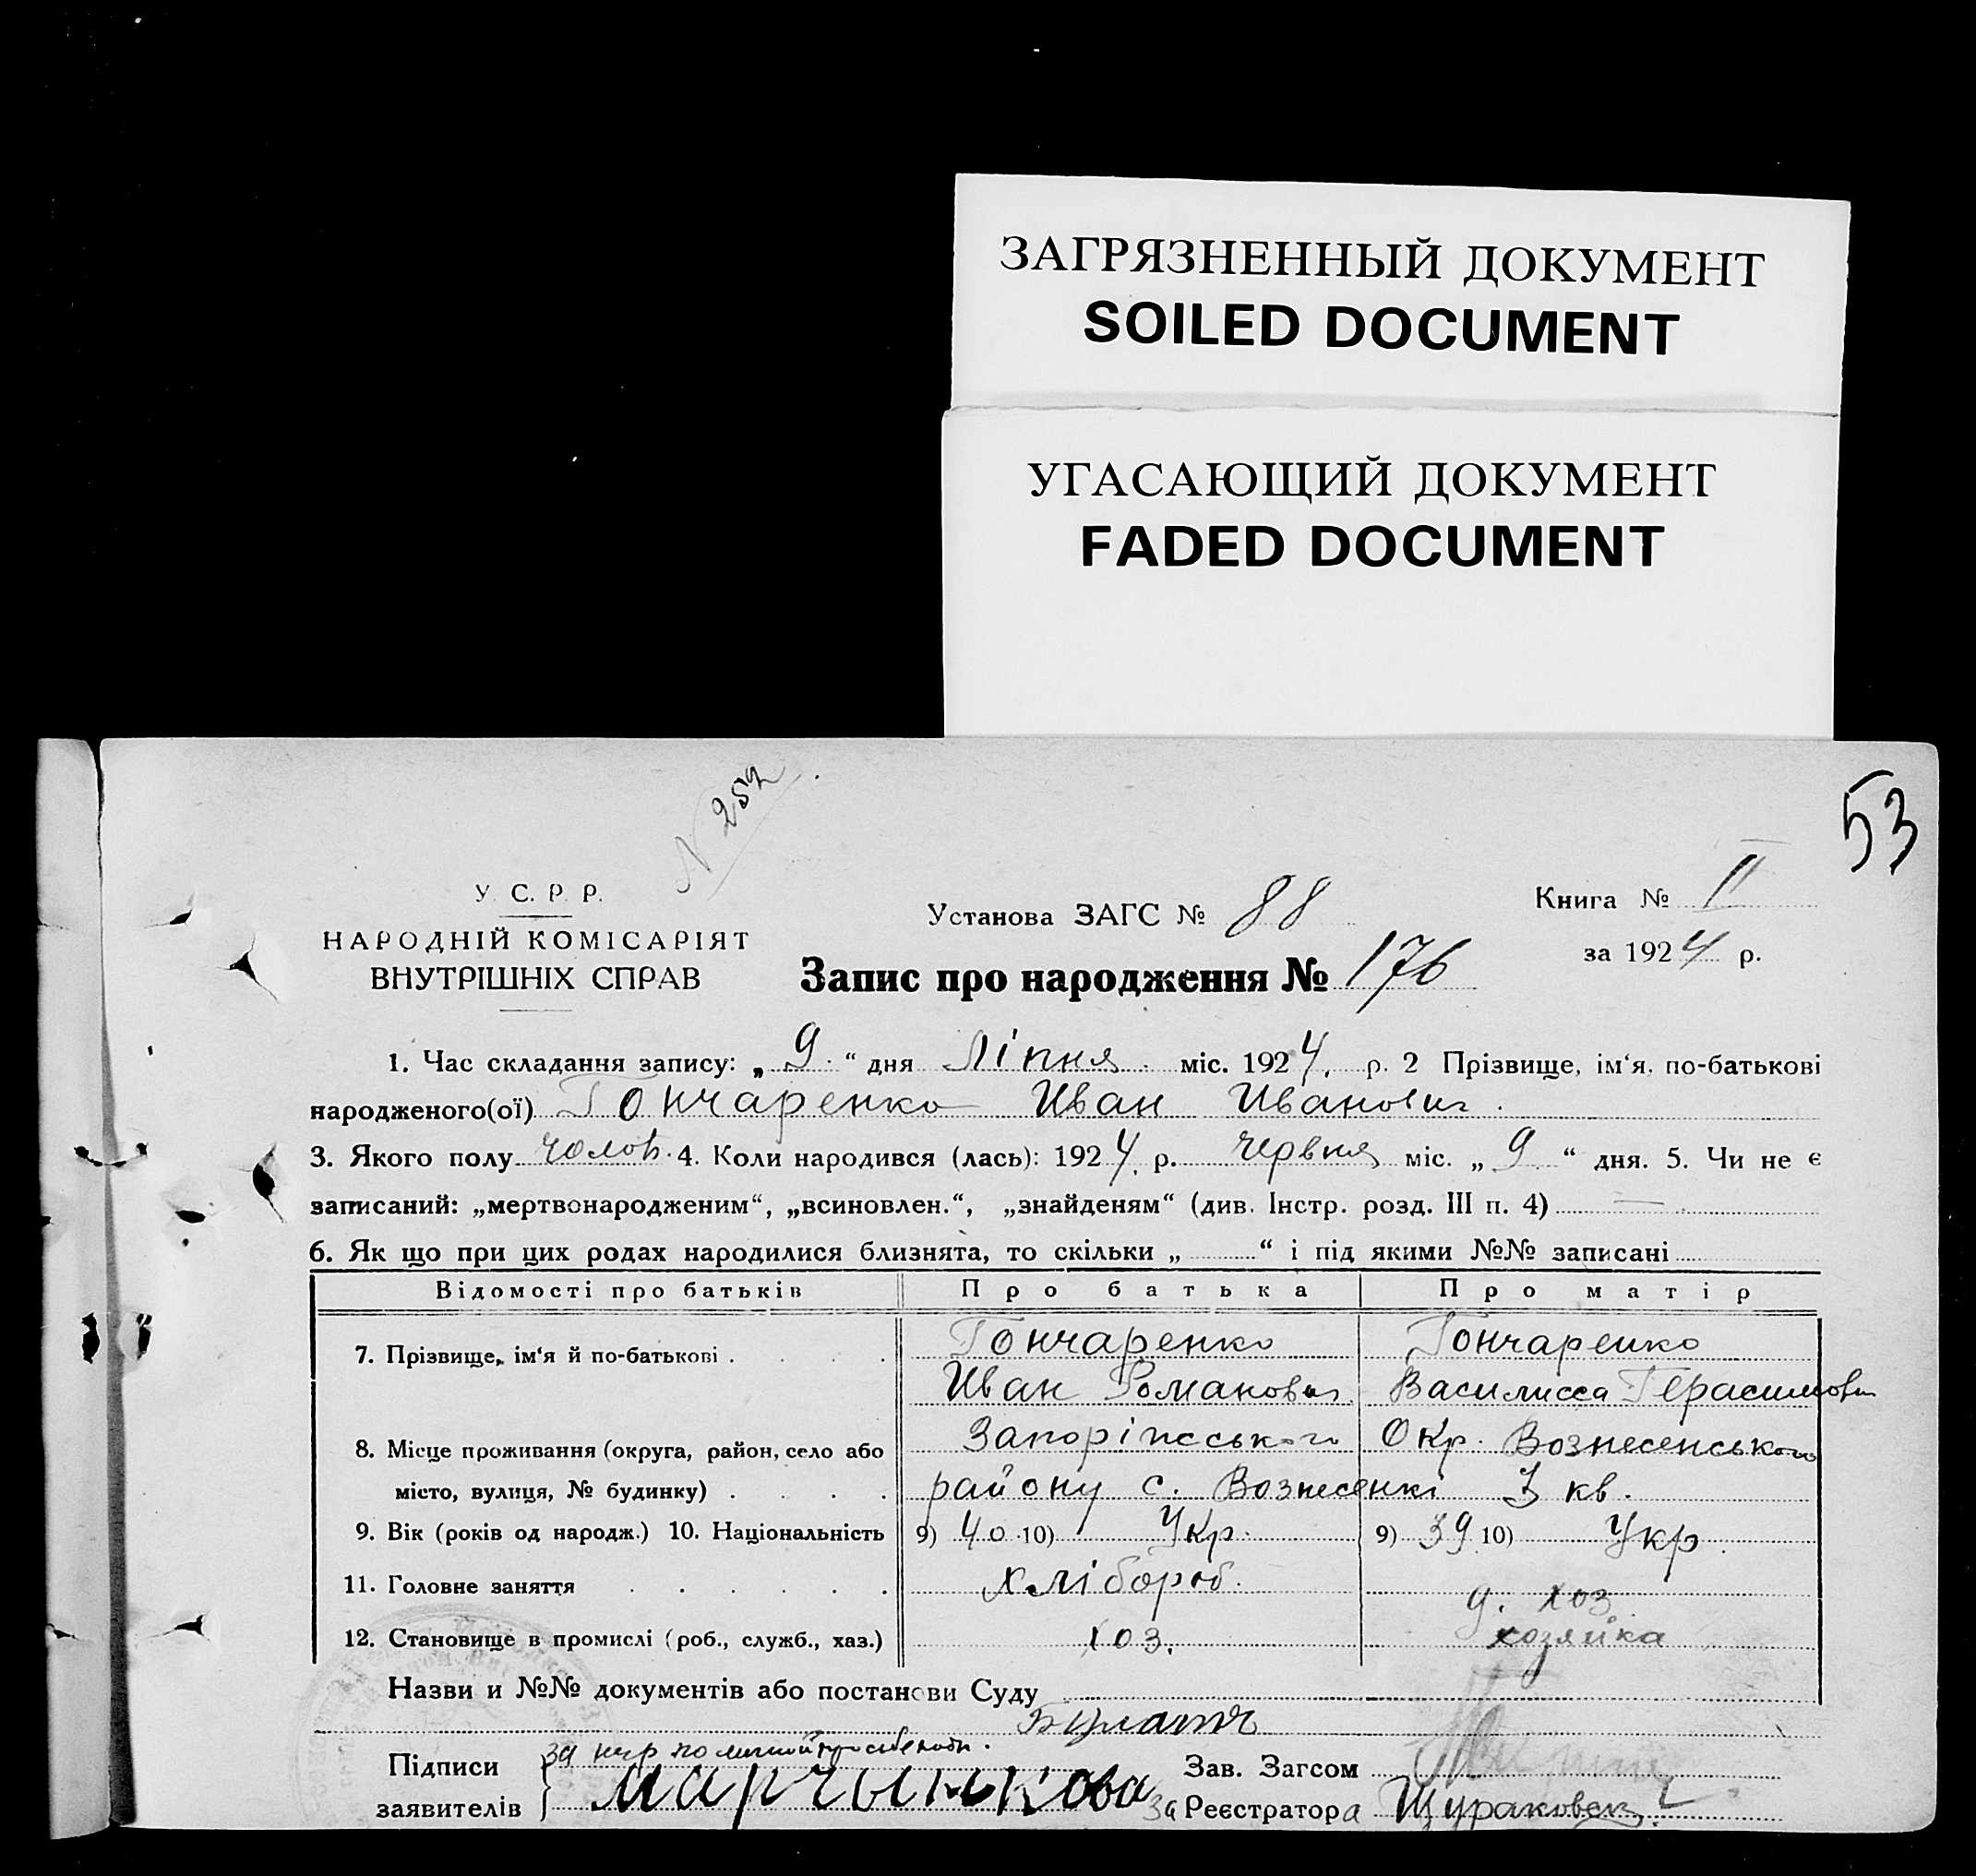 ЗАГРЯЗНЕННЫЙ ДОКУМЕНТ
SOILED DOCUMENT
УГАСАЮЩИЙ ДОКУМЕНТ
FADED DOCUMENT
53
N 252
У. С. Р. Р.
НАРОДНІЙ КОМІСАРІЯТ
ВНУТРІШНІХ СПРАВ
Установа ЗАГС № 88
Книга № II
за 1924 р.
Запис про народження № 176
1. Час складання запису: „9.“ дня Ліпня міс. 1924. р. 2 Прізвище, ім‘я, по-батькові
народженого(ої) Гончаренко Иван Иванович.
3. Якого полу чолов. 4. Коли народився (лась): 1924. р. червня міс. „9“ дня. 5. Чи не є
записаний: „мертвонародженим“, „всиновлен.“, „знайденям“ (див. Інстр. розд. III п. 4) —
6. Як що при цих родах народилися близнята, то скільки „ “ і під якими №№ записані
Відомості про батьків Про батька Про матір
7. Прізвище, ім‘я й по-батькові . Гончаренко Гончаренко
Иван Романович Василисса Герасимовн
8. Місце проживання (округа, район, село або Запоріжського Окр. Вознесенського
місто, вулиця, № будинку) . району с. Вознесенкі 3 кв.
9. Вік (років од народж.) 10. Національність 9) 40 10) Укр. 9) 39 10) Укр.
11. Головне заняття хлібороб. д. хоз.
12. Становище в промислі (роб., служб., хаз.) хоз. хозяйка
Назви и №№ документів або постанови Суду
Підписи за нгр по личной просьбе
заявителів
Зав. Загсом
за Реєстратора Щураковск